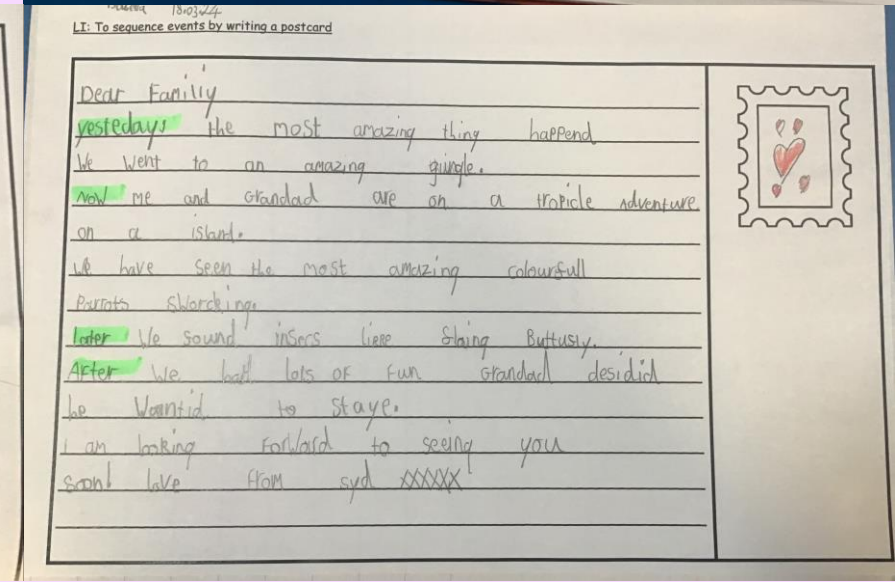 18.03.24
LI: To sequence events by writing a postcard
Dear Familiy
yestedays the most amazing thing happend
We went to an amazing gungle.
Now me and Grandad are on a tropicle Adventure
on a island.
We have seen the most amazing colourfull
Parrots
later We sound
After We had lots of Fun Grandad desidid
he Wantid to staye.
I am looking Forward to seeing you
soon! love from syd xxxxx